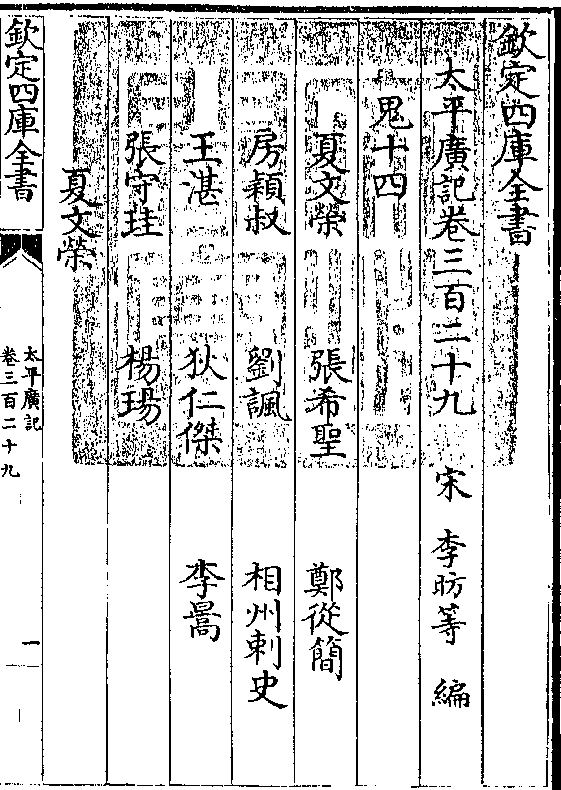 欽定四庫全書
太平廣記卷三百二十九　宋　李昉等　編
鬼十四
夏文榮　張希聖　鄭從簡
房穎叔　劉諷　相州刺史
王湛　狄仁傑　李暠
張守珪　楊瑒
夏文榮
欽定四庫全書
太平廣記
卷三百二十九
一